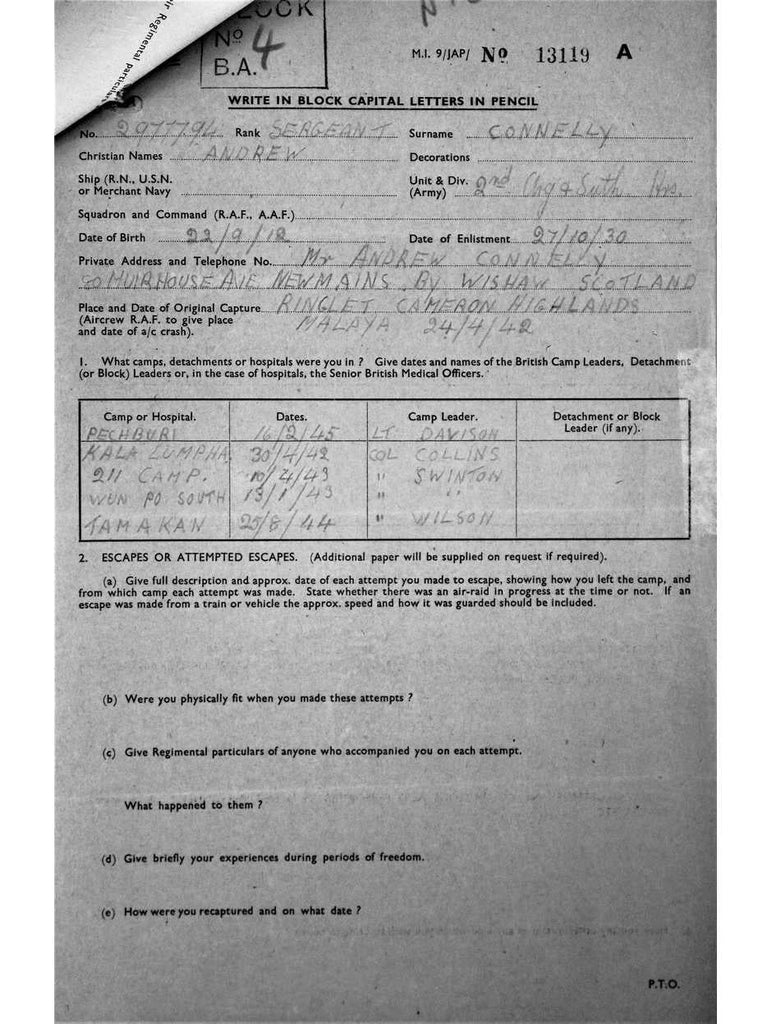 Regimental particulars
BLOCK
No 4
B.A.
M.I. 9/JAP/ No 13119 A
WRITE IN BLOCK CAPITAL LETTERS IN PENCIL
No. 2977794 Rank SERGEANT Surname CONNELLY
Christian Names ANDREW Decorations
Ship (R.N., U.S.N. or Merchant Navy Unit & Div. (Army) 2nd Arg & Suth Hrs.
Squadron and Command (R.A.F., A.A.F.)
Date of Birth 22/9/12 Date of Enlistment 27/10/30
Private Address and Telephone No. Mr ANDREW CONNELLY
MUIRHOUSE AVE NEWMAINS. By WISHAW SCOTLAND
Place and Date of Original Capture RINGLET CAMERON HIGHLANDS
(Aircrew R.A.F. to give place MALAYA 24/4/42
and date of a/c crash).
1. What camps, detachments or hospitals were you in ? Give dates and names of the British Camp Leaders, Detachment
(or Block) Leaders or, in the case of hospitals, the Senior British Medical Officers.
Camp or Hospital. Dates. Camp Leader. Detachment or Block Leader (if any).
PECHBURI 16/2/45 LT DAVISON
KALA LUMPHA 30/4/42 COL COLLINS
211 CAMP. 10/4/43 " SWINTON
WUN PO SOUTH 13/1/43 " "
TAMAKAN 25/8/44 " WILSON
2. ESCAPES OR ATTEMPTED ESCAPES. (Additional paper will be supplied on request if required).
(a) Give full description and approx. date of each attempt you made to escape, showing how you left the camp, and
from which camp each attempt was made. State whether there was an air-raid in progress at the time or not. If an
escape was made from a train or vehicle the approx. speed and how it was guarded should be included.
(b) Were you physically fit when you made these attempts ?
(c) Give Regimental particulars of anyone who accompanied you on each attempt.
What happened to them ?
(d) Give briefly your experiences during periods of freedom.
(e) How were you recaptured and on what date ?
P.T.O.